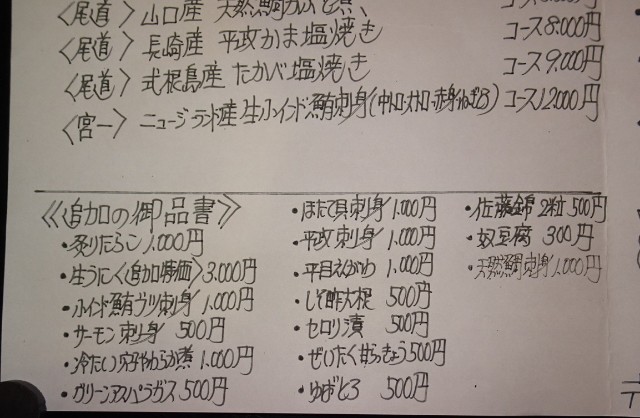 〈尾直〉山口産 天然鯛かぶと煮
〈尾道〉長崎産 平政かま塩焼き コース8.000円
〈尾道〉式根島産 たかべ塩焼き コース9.000円
〈宮一〉ニュージランド産 生インド鮪刺身(中トロ・大トロ・赤身・ねぎとろ) コース12.000円
《追加の御品書》
・炙りたらこ 1.000円
・生うにく〈追加特価〉3.000円
・インド鮪ブツ刺身 1.000円
・サーモン刺身 500円
・冷たい穴子やわらか煮 1.000円
・グリーンアスパラガス 500円
・ほたて貝刺身 1.000円
・平政刺身 1.000円
・平目えんがわ 1.000円
・しそ酢大根 500円
・セロリ漬 500円
・ぜいたく甘らっきょう 500円
・ゆばとろ 500円
・佐藤錦 2粒 500円
・奴豆腐 300円
・天然鯛刺身 1.000円